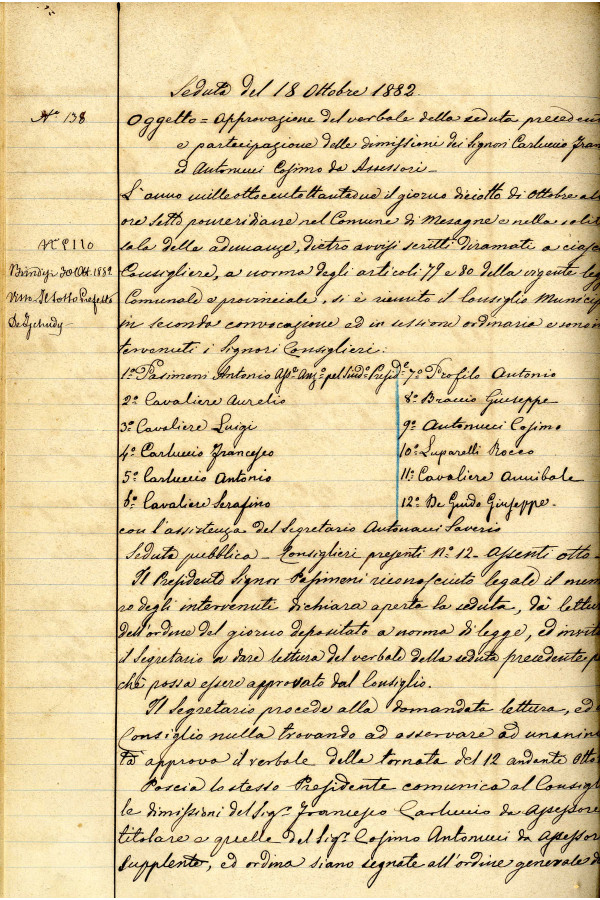 Seduta del 18 Ottobre 1882
N° 138
Oggetto = Approvazione del verbale della seduta precedent
e partecipazione delle dimissioni dei Signori Carluccio Fran
ed Antonucci Cosimo da Assessori_
L'anno milleottocentottantadue il giorno diciotto di Ottobre al
ore sette pomeridiane nel Comune di Mesagne e nella solit
sala delle adunanze, dietro avvisi scritti diramati a ciasc
Consigliere, a norma degli articoli 79 e 80 della vigente leg
Comunale e provinciale, si è riunito il Consiglio Municip
in seconda convocazione ed in sessione ordinaria e sono in
tervenuti i Signori Consiglieri:
N° 5110
Brindisi 30 Ott. 1882
Visto Il Sotto Prefetto
1° Pasimeni Antonio Ass.e Anz.o pel Sind.o Presid.e
2° Cavaliere Aurelio
3° Cavaliere Luigi
4° Carluccio Francesco
5° Carluccio Antonio
6° Cavaliere Serafino
7° Profilo Antonio
8° Braccio Giuseppe
9° Antonucci Cosimo
10° Luparelli Rocco
11° Cavaliere Annibale
12° De Guido Giuseppe.
con l'assistenza del Segretario Antonucci Saverio
Seduta pubblica_ Consiglieri presenti N° 12. Assenti otto_
Il Presidente Signor Pasimeni riconosciuto legale il nume
ro degli intervenuti dichiara aperta la seduta, dà lettur
dell'ordine del giorno depositato a norma di legge, ed invit
il Segretario a dare lettura del verbale della seduta precedente p
chè possa essere approvato dal Consiglio.
Il Segretario procede alla domandata lettura, ed
Consiglio nulla trovando ad osservare ad unanimi
tà approva il verbale della tornata del 12 andante Otto
Poscia lo stesso Presidente comunica al Consigl
le dimissioni del Sig.r Francesco Carluccio da Assessore
titolare e quelle del Sig.r Cosimo Antonucci da Assessor
supplente, ed ordina siano segnate all'ordine generale d